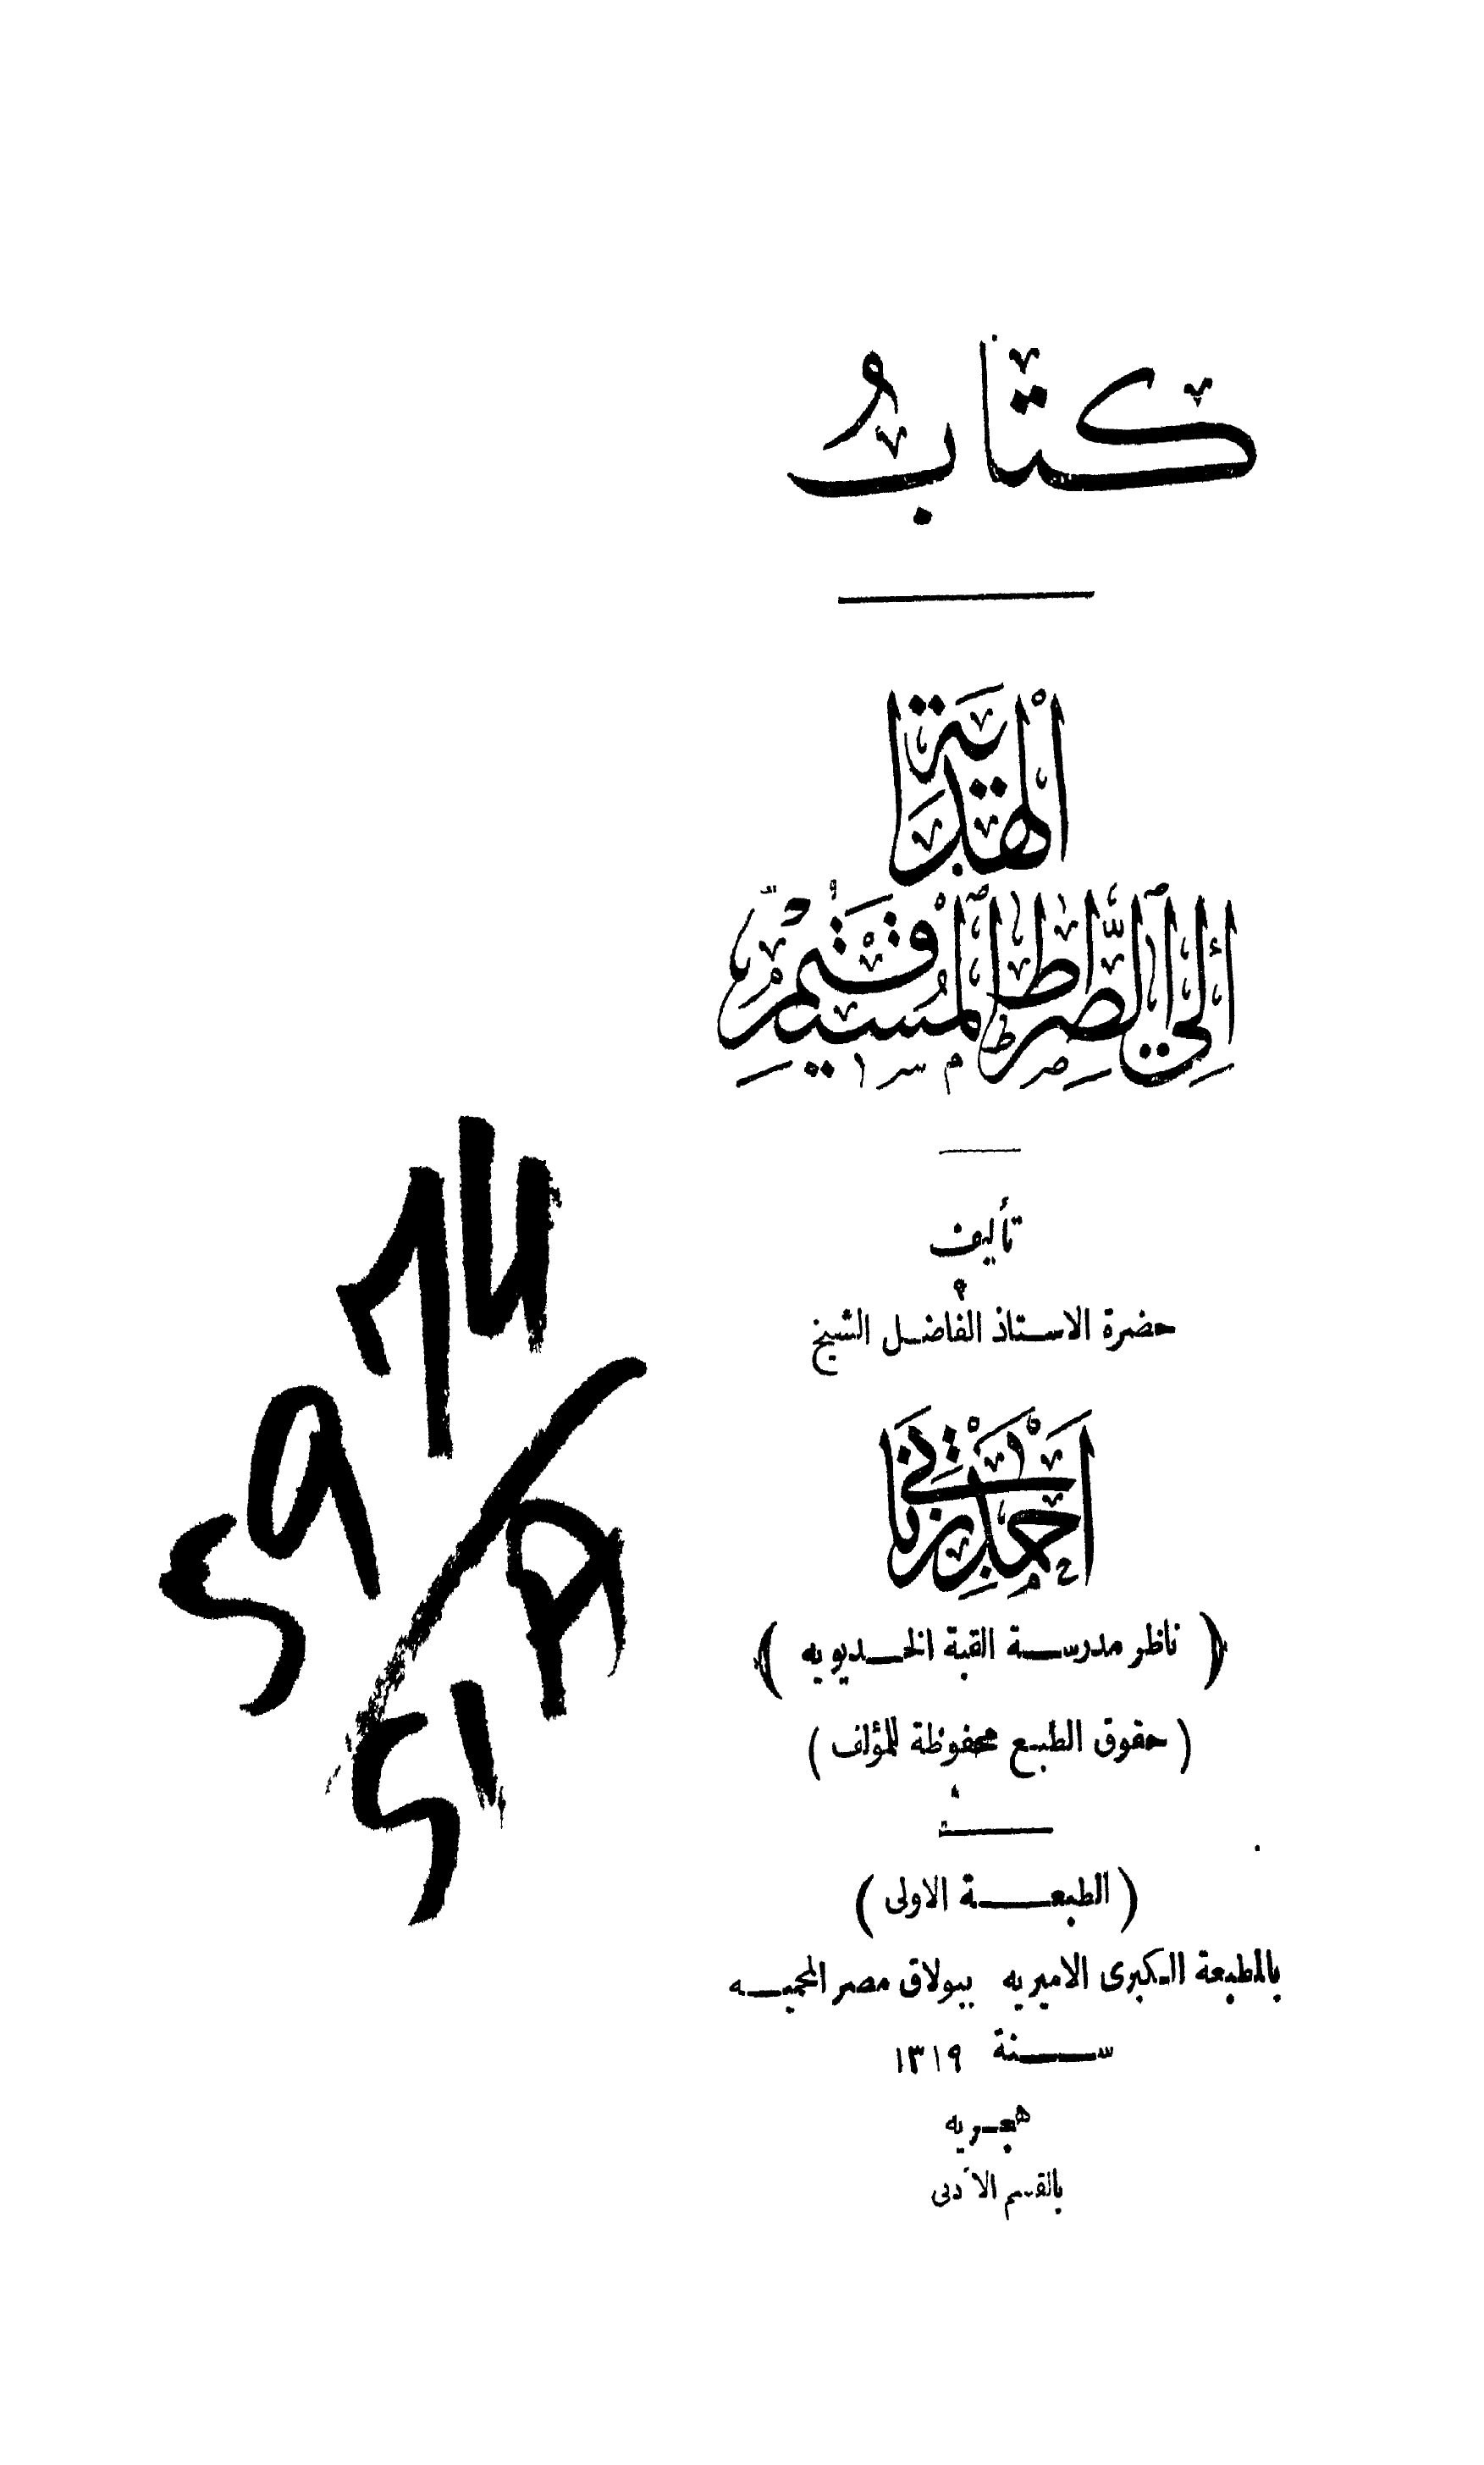 كتابُ
الهداية
إلى الصراط المستقيم
تأليف
حضرة الاستاذ الفاضل الشيخ
أحمد
(ناظر مدرسة القبة الخديويه)
(حقوق الطبع محفوظة للمؤلف)
(الطبعة الاولى)
بالمطبعة الكبرى الاميريه ببولاق مصر المحميه
سنة ١٣١٩
هجريه
بالقسم الأدبى